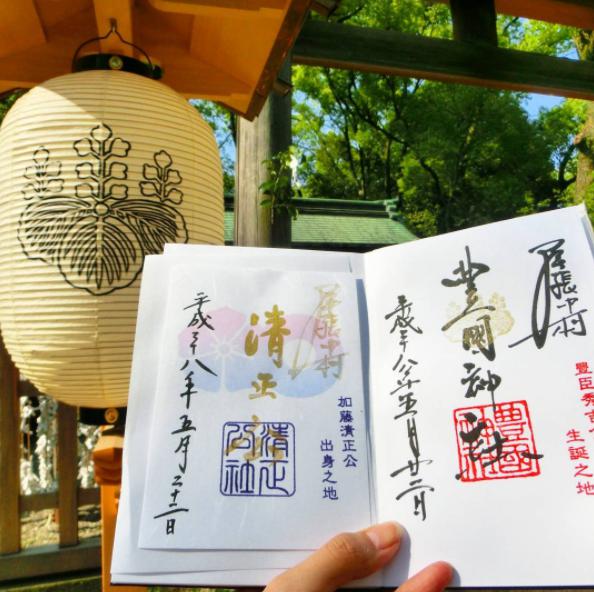 尾張中村
豊臣秀吉
生誕之地
豊國神社
平成二十八年五月廿二日
尾張中村
加藤清正公
出身之地
清正公社
清正公社
平成二十八年 五月二十二日